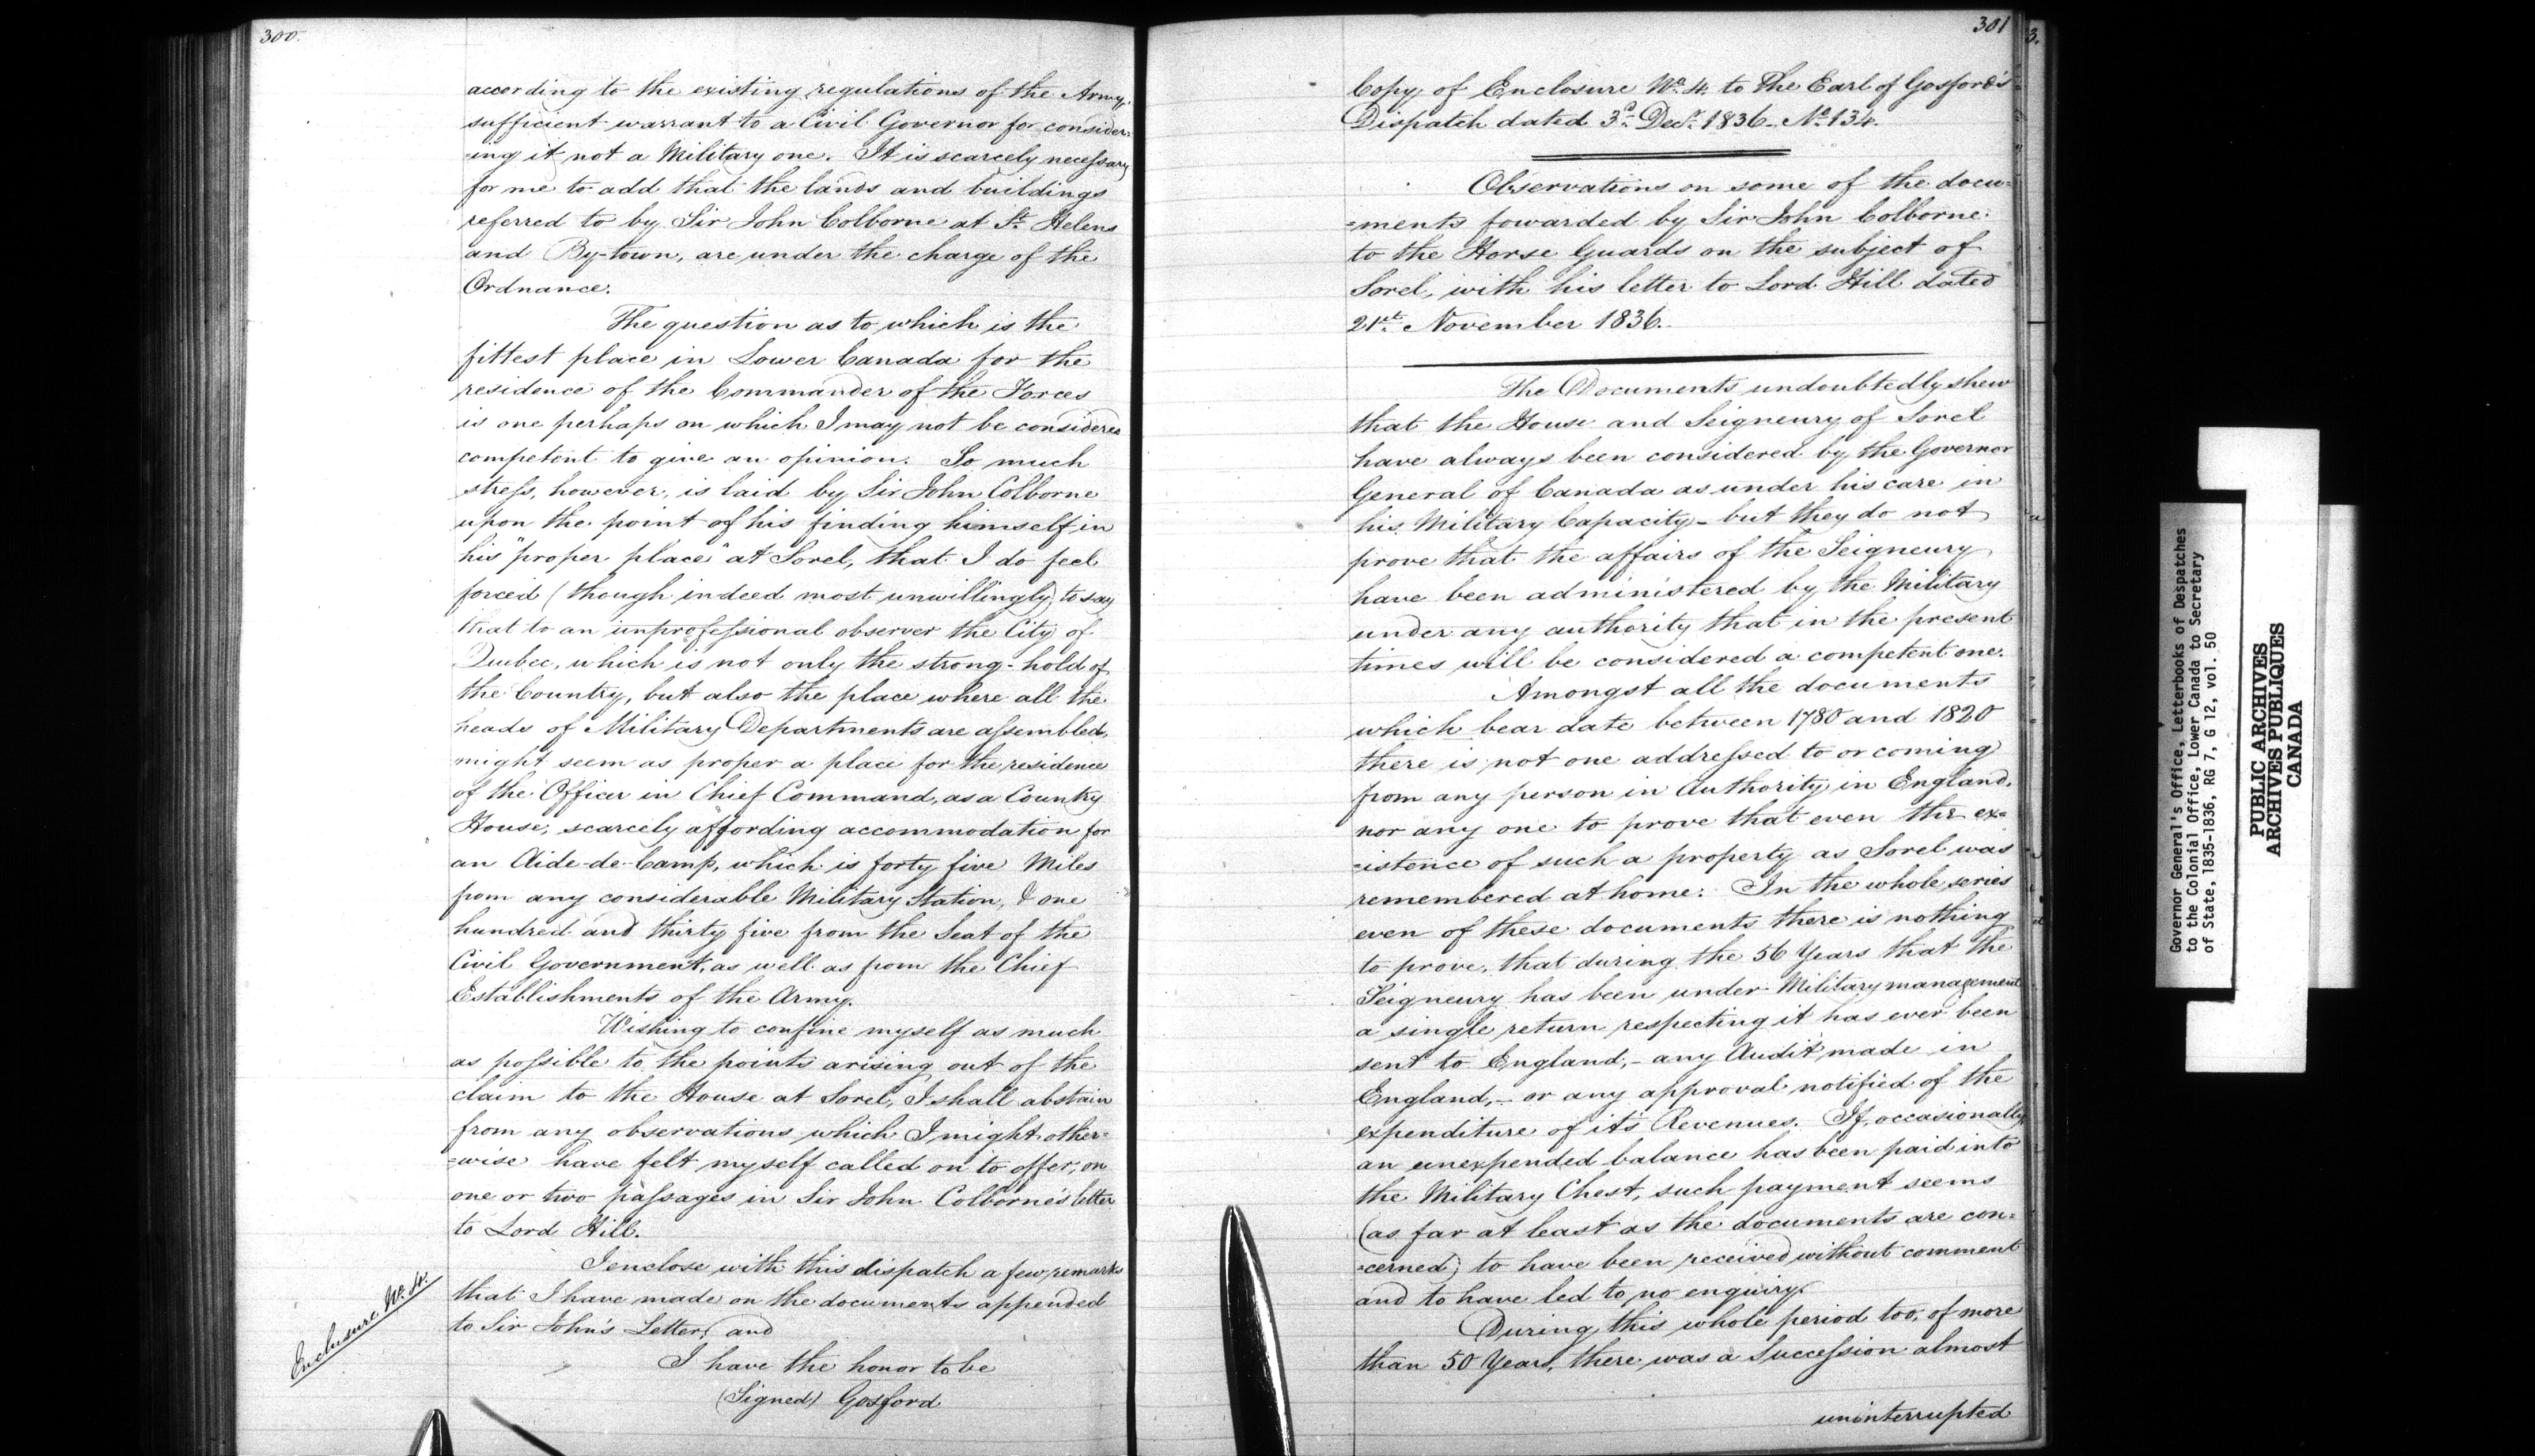 300.
according to the existing regulations of the Army,
sufficient warrant to a Civil Governor for consider=
=ing it not a Military one. It is scarcely necessary
for me to add that the lands and buildings
referred to by Sir John Colborne at St. Helens
and By-town, are under the charge of the
Ordnance.
The question as to which is the
fittest place in Lower Canada for the
residence of the Commander of the Forces
is one perhaps on which I may not be considered
competent to give an opinion. So much
stress, however, is laid by Sir John Colborne
upon the point of his finding himself in
his "proper place" at Sorel, that I do feel
forced (though indeed most unwillingly) to say
that to an unprofessional observer the City of
Quebec, which is not only the strong-hold of
the Country, but also the place where all the
heads of Military Departments are assembled,
might seem as proper a place for the residence
of the Officer in Chief Command, as a Country
House, scarcely affording accommodation for
an Aide-de-Camp, which is forty five Miles
from any considerable Military Station, & one
hundred and thirty five from the Seat of the
Civil Government, as well as from the Chief
Establishments of the Army.
Wishing to confine myself as much
as possible to the points arising out of the
claim to the House at Sorel, I shall abstain
from any observations which I might other=
=wise have felt myself called on to offer, on
one or two passages in Sir John Colborne's letter
to Lord Hill.
Enclosure No. 4.
I enclose with this dispatch a few remarks
that I have made on the documents appended
to Sir John's Letter, and
I have the honor to be
(Signed) Gosford
301
Copy of Enclosure No. 4 to The Earl of Gosford's
Dispatch dated 3d. Decr. 1836. No. 134.
Observations on some of the docu=
=ments fowarded by Sir John Colborne
to the Horse Guards on the subject of
Sorel, with his letter to Lord Hill dated
21st. November 1836.
The Documents undoubtedly shew
that the House and Seigneury of Sorel
have always been considered by the Governor
General of Canada as under his care in
his Military Capacity - but they do not
prove that the affairs of the Seigneury
have been administered by the Military
under any authority that in the present
times will be considered a competent one.
Amongst all the documents
which bear date between 1780 and 1820
there is not one addressed to or coming
from any person in Authority in England,
nor any one to prove that even the ex=
=istence of such a property as Sorel was
remembered at home. In the whole series
even of these documents there is nothing
to prove, that during the 56 Years that the
Seigneury has been under Military management
a single return respecting it has ever been
sent to England, - any Audit made in
England, - or any approval notified of the
expenditure of it's Revenues. If, occasionally,
an unexpended balance has been paid into
the Military Chest, such payment seems
(as far at least as the documents are con=
=cerned) to have been received without comment
and to have led to no enquiry.
During this whole period too, of more
than 50 Years, there was a Succession almost
uninterrupted
3.
Governor General's Office, Letterbooks of Despatches
to the Colonial Office, Lower Canada to Secretary
of State, 1835-1836, RG 7, G 12, vol. 50
PUBLIC ARCHIVES
ARCHIVES PUBLIQUES
CANADA